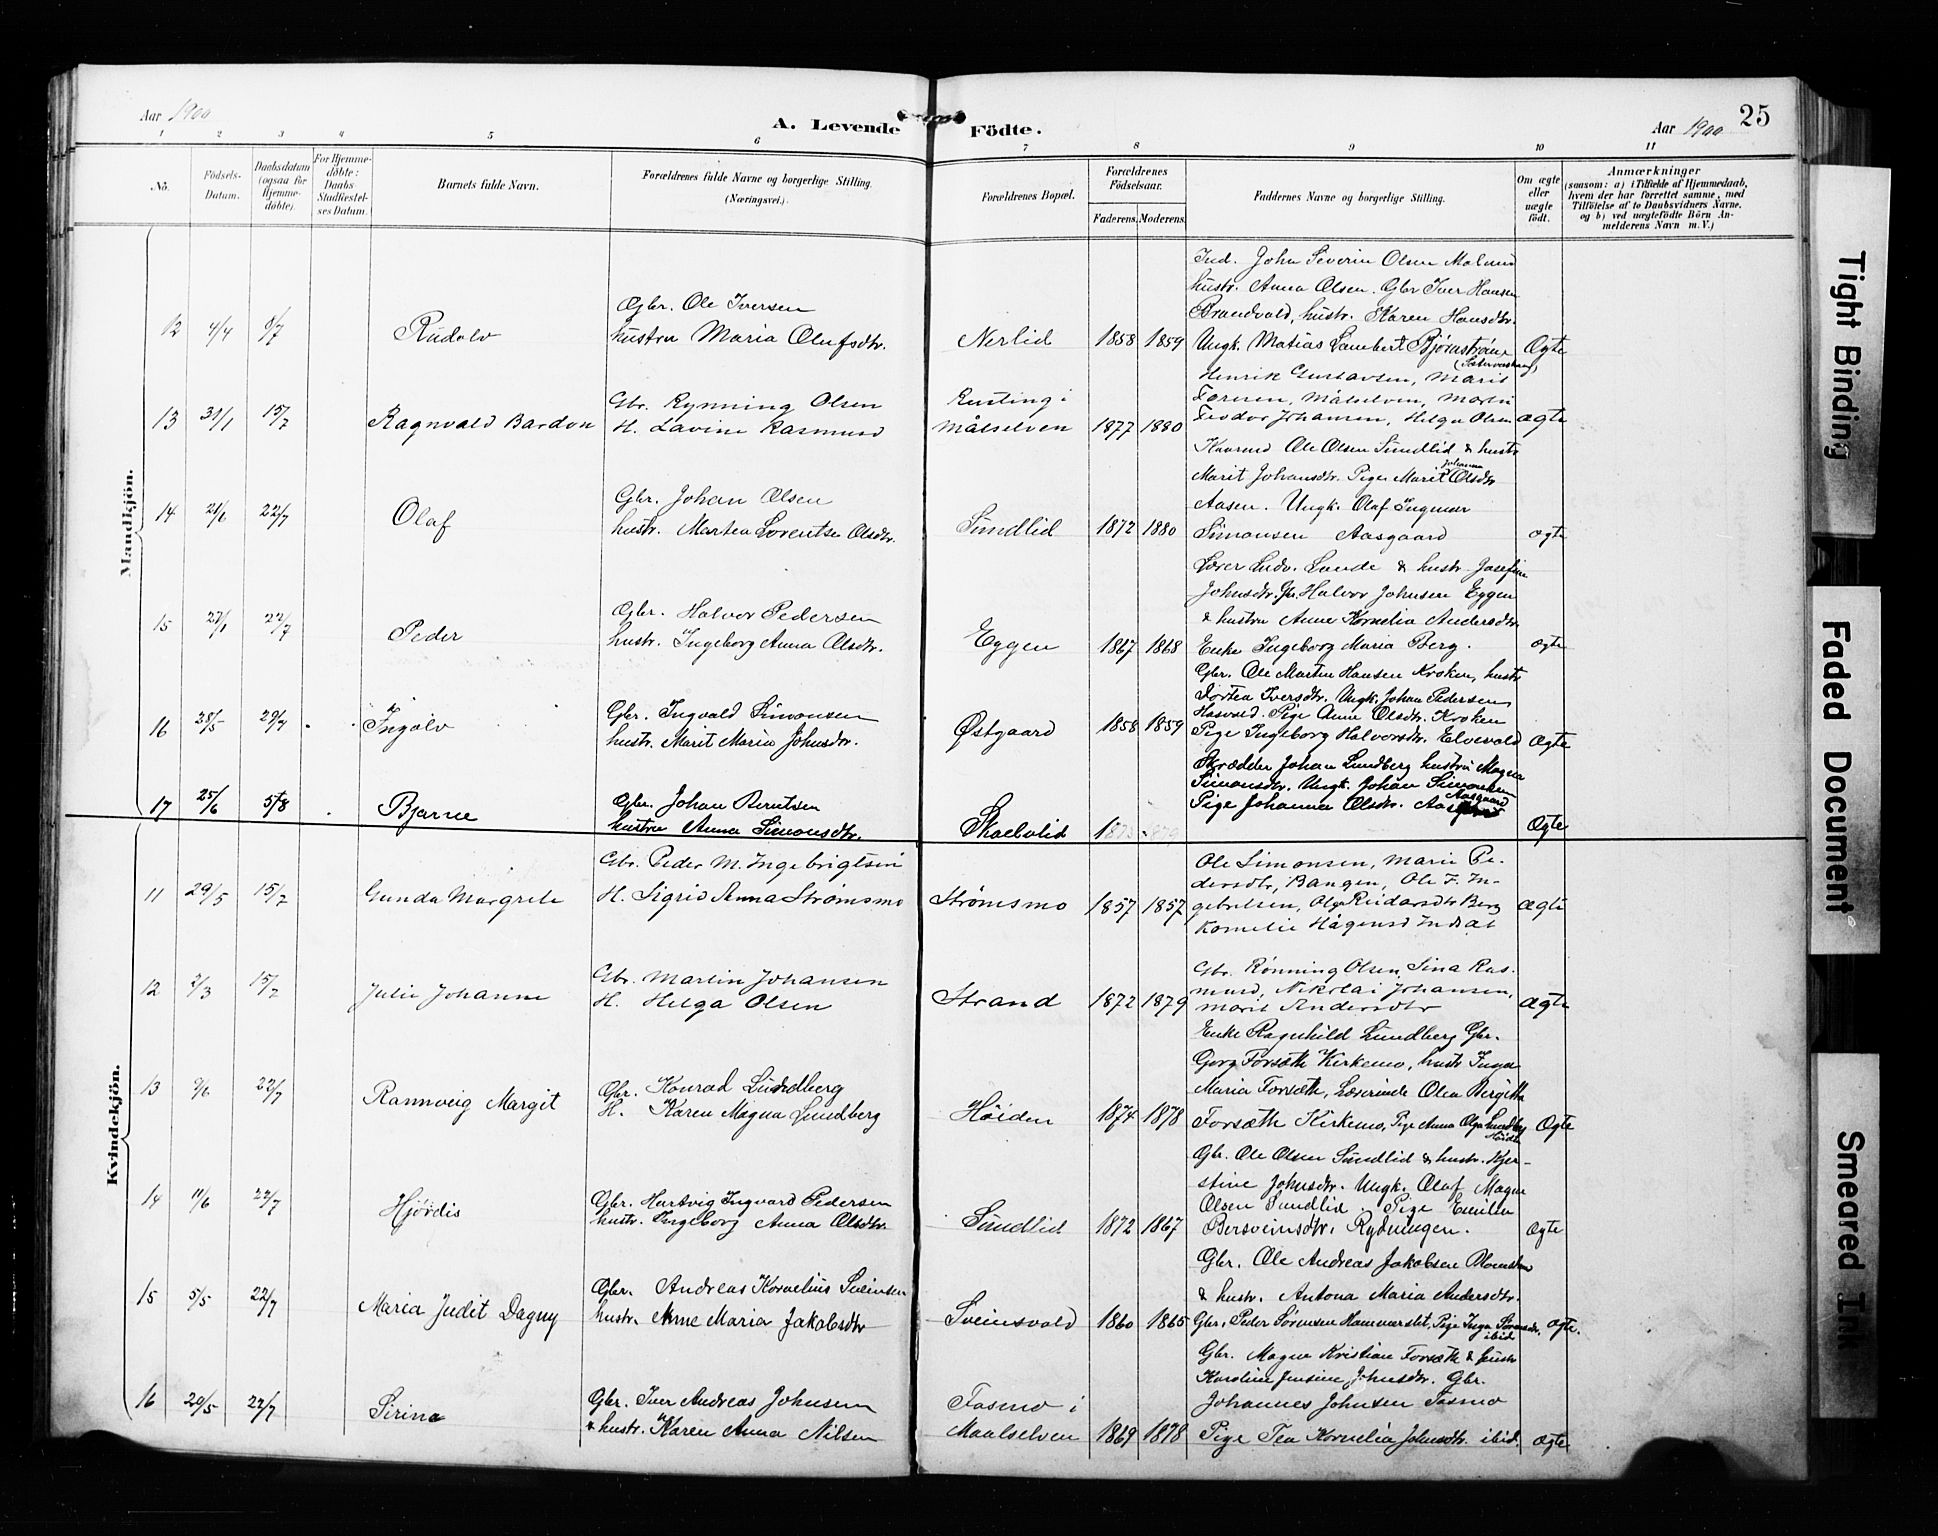 Aar 1900
A. Levende Födte.
Aar 1900 25
1 2 3 4 5 6 7 8 9 10 11
No.
Födsels-Datum.
Daabsdatum (ogsaa for Hjemme-döbte).
For Hjemme-döbte: Daabs Stadfæstel-ses Datum.
Barnets fulde Navn.
Forældrenes fulde Navne og borgerlige Stilling. (Næringsvei.)
Forældrenes Bopæl.
Forældrenes Födselsaar.
Faderens. Moderens.
Faddernes Navne og borgerlige Stilling.
Om ægte eller uægte födt.
Anmærkninger
(saasom: a) i Tilfælde af Hjemmedaab, hvem der har forrettet samme, med Tilföielse af to Daabsvidners Navne, og b) ved uægtefödte Börn An-melderens Navn m. V.)
Mandkjön.
Ind. John Severin Olsen Moland
hustr. Anna Olsen. Gbr Iver Hansen
Brandvold, hustr. Karen Hansdtr.
12 4/4 8/7 Rudolv
Gbr. Ole Iversen
hustru Maria Olufsdtr.
Nerlid 1858 1859
Ungk. Matias Lambert Bjørnstrøm Ægte
Henrik Gustavsen, Marit
13 31/1 15/7 Ragnvald Bardon
Gbr. Rynning Olsen
H. Lavine Rasmusd
Rusting i
Målselven 1877 1880
Målselven, Martin
Teodor Johansen, Helga Olsen ægte
Ole Olsen Sundlid & hustr
Marit Johansdtr. Pige Marit Johanna Olsdtr
14 21/6 22/7 Olaf
Gbr. Johan Olsen
hustr. Martea Lorentse Olsdtr.
Sundlid 1872 1880
Aasen. Ungk. Olaf Ingmar
Simonsen Aasgaard ægte
Lærer Ludv. Lunde & hustr Josefine
Johnsdtr. Gbr. Halvor Johnsen Eggen
& hustru Anne Kornelia Andersdtr.
15 27/1 22/7 Peder
Gbr. Halvor Pedersen
hustr. Ingeborg Anna Olsdtr.
Eggen 1867 1868
Enke Ingeborg Maria Berg. ægte
Gbr. Ole Martin Hansen Kroken, hustr
Dortea Iversdtr. Ungk. Johan Pedersen
16 28/5 29/7 Ingolv
Gbr. Ingvald Simonsen
hustr. Marit Maria Johnsdtr.
Østgaard 1858 1859
Pige Anne Olsdtr. Kroken
Pige Ingeborg Halvorsdtr. Elvevold Ægte
Skrædder Johan Lundberg hustru Magna
Simonsdtr. Ungk. Johan Simonsen Aasgaard
17 25/6 5/8 Bjarne
Gbr. Johan Berntsen
hustru Anna Simonsdtr.
Skoelvlid 1873 1879
Pige Johanna Olsdtr. Ægte
Kvindekjön.
11 29/5 15/7 Gunda Margrete
Gbr. Peder M. Ingebrigtsen
H. Sigrid Anna Strømsmo
Strømsmo 1857 1857
Ole Simonsen, Marie Pe-
dersdtr, Bangen, Ole P. In-
gebretsen, Olga Reidarsdtr Berg ægte
Kornelie Hågensd Indset
12 2/3 15/7 Julie Johanne
Gbr. Martin Johansen
H. Helga Olsen
Strand 1872 1879
Gbr. Rønning Olsen, Sina Ras-
musd, Nikolai Johansen,
Marit Andersdtr ægte
Enke Ragnhild Lundberg Gbr.
Georg Forsæth Kirkemo, hustr Inga
13 9/6 22/7 Rannveig Margit
Gbr. Konrad Lundberg
H. Karen Magna Lundberg
Høiden 1874 1878
Maria Forsæth, Læerinde Olea Bergitta
Forsæth Kirkemo, Pige Anna Olga Lundby Høiden Ægte
Gbr. Ole Olsen Sundlid & hustr. Kjer-
stine Johnsdtr. Ungk. Olaf Magne
14 11/6 22/7 Hjördis
Gbr. Hartvig Ingvard Pedersen
hustr. Ingeborg Anna Olsdtr
Sundlid 1872 1867
Olsen Sundlid Pige Emilie
Bersveinsdtr. Rydningen. Ægte
Gbr. Ole Andreas Jakobsen
& hustr. Antona Maria Andersdtr.
15 5/5 22/7 Maria Judit Dagny
Gbr. Andreas Kornelius Sveinsen
hustr. Anne Maria Jakobsdtr
Sveinsvold 1860 1865
Gbr. Peder Sørensen Hammerslet, Pige Inga Sørensdtr. ibid ægte.
Gbr. Magne Kristian Forsæth & hustr
Karoline Jensine Johnsdtr. Gbr.
16 20/5 22/7 Sirina
Gbr. Iver Andreas Johnsen
& hustr. Karen Anna Nilsen
Fosmo i
Maalselven 1869 1878
Johannes Johnsen Fosmo
Pige Tea Kornelia Johnsdtr. ibid. Ægte
Tight Binding
Faded Document
Smeared Ink